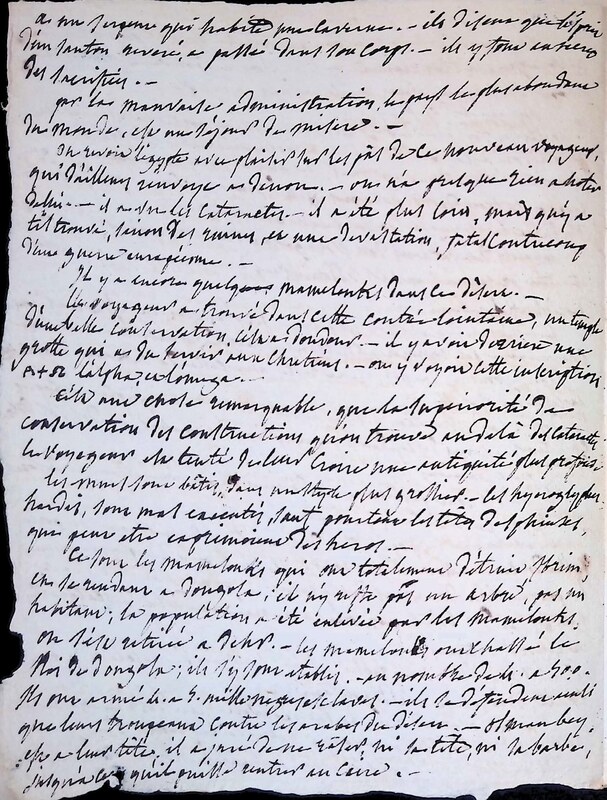 a un serpent qui habite une caverne. – ils disent que l'esprit
d'un santon reveré, a passé dans son corps. – ils y font
des sacrifices. –
par la mauvaise administration, le pays le plus abondant
du monde, est un séjour de misere. –
on revoit l'egypte avec plaisir sur les pas de ce nouveau voyageur,
qui d'ailleurs renvoye a denon. – on n'a presque rien a noter
– il a vu les cataractes. – il a été plus loin, mais qu'y a
t'il trouvé, sinon des ruines, et une devastation, fatal contrecoup
d'une guerre européenne. –
Il y a encore quelques mamelouks dans ce désert. –
le voyageur a trouvé dans cette contrée lointaine, un temple
d'une belle conservation, c'est a dondour. – il y a voit derriere une
grotte qui a du servir aux chretiens. – on y voyoit cette inscription
l'alpha, et l'omega. –
C'est une chose remarquable, que la superiorité de
conservation des constructions qu'on trouve au dela des cataractes
le voyageur est tenté de leur croire une antiquité plus
les murs sont bâtis, dans un style plus grossier. – les hyerogliphes
hardis, sont mal executés, sauf les têtes des
que peut etre des heros. –
Ce sont les mamelouks qui ont totalement détruit Ibrim,
en se rendant a dongola; il n'y reste pas un arbre, pas un
habitant; la population a été enlevée par les mamelouks,
on s'est retiré a – les mamelouks ont chassé le
Roi de dongola; ils s'y sont etablis. – au nombre de a 500.
Ils ont armé 4. a 5. mille negres esclaves. – ils se defendent
que leurs troupeaux contre les arabes du désert. – osman bey
est a leur tête, il a juré de ne raser, ni sa tête, ni sa barbe,
jusqu'a ce qu'il puisse rentrer au Caire. –